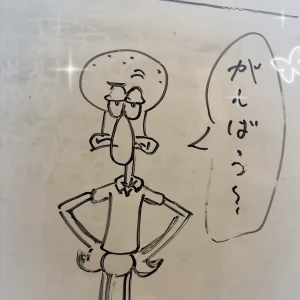 がんばろ〜